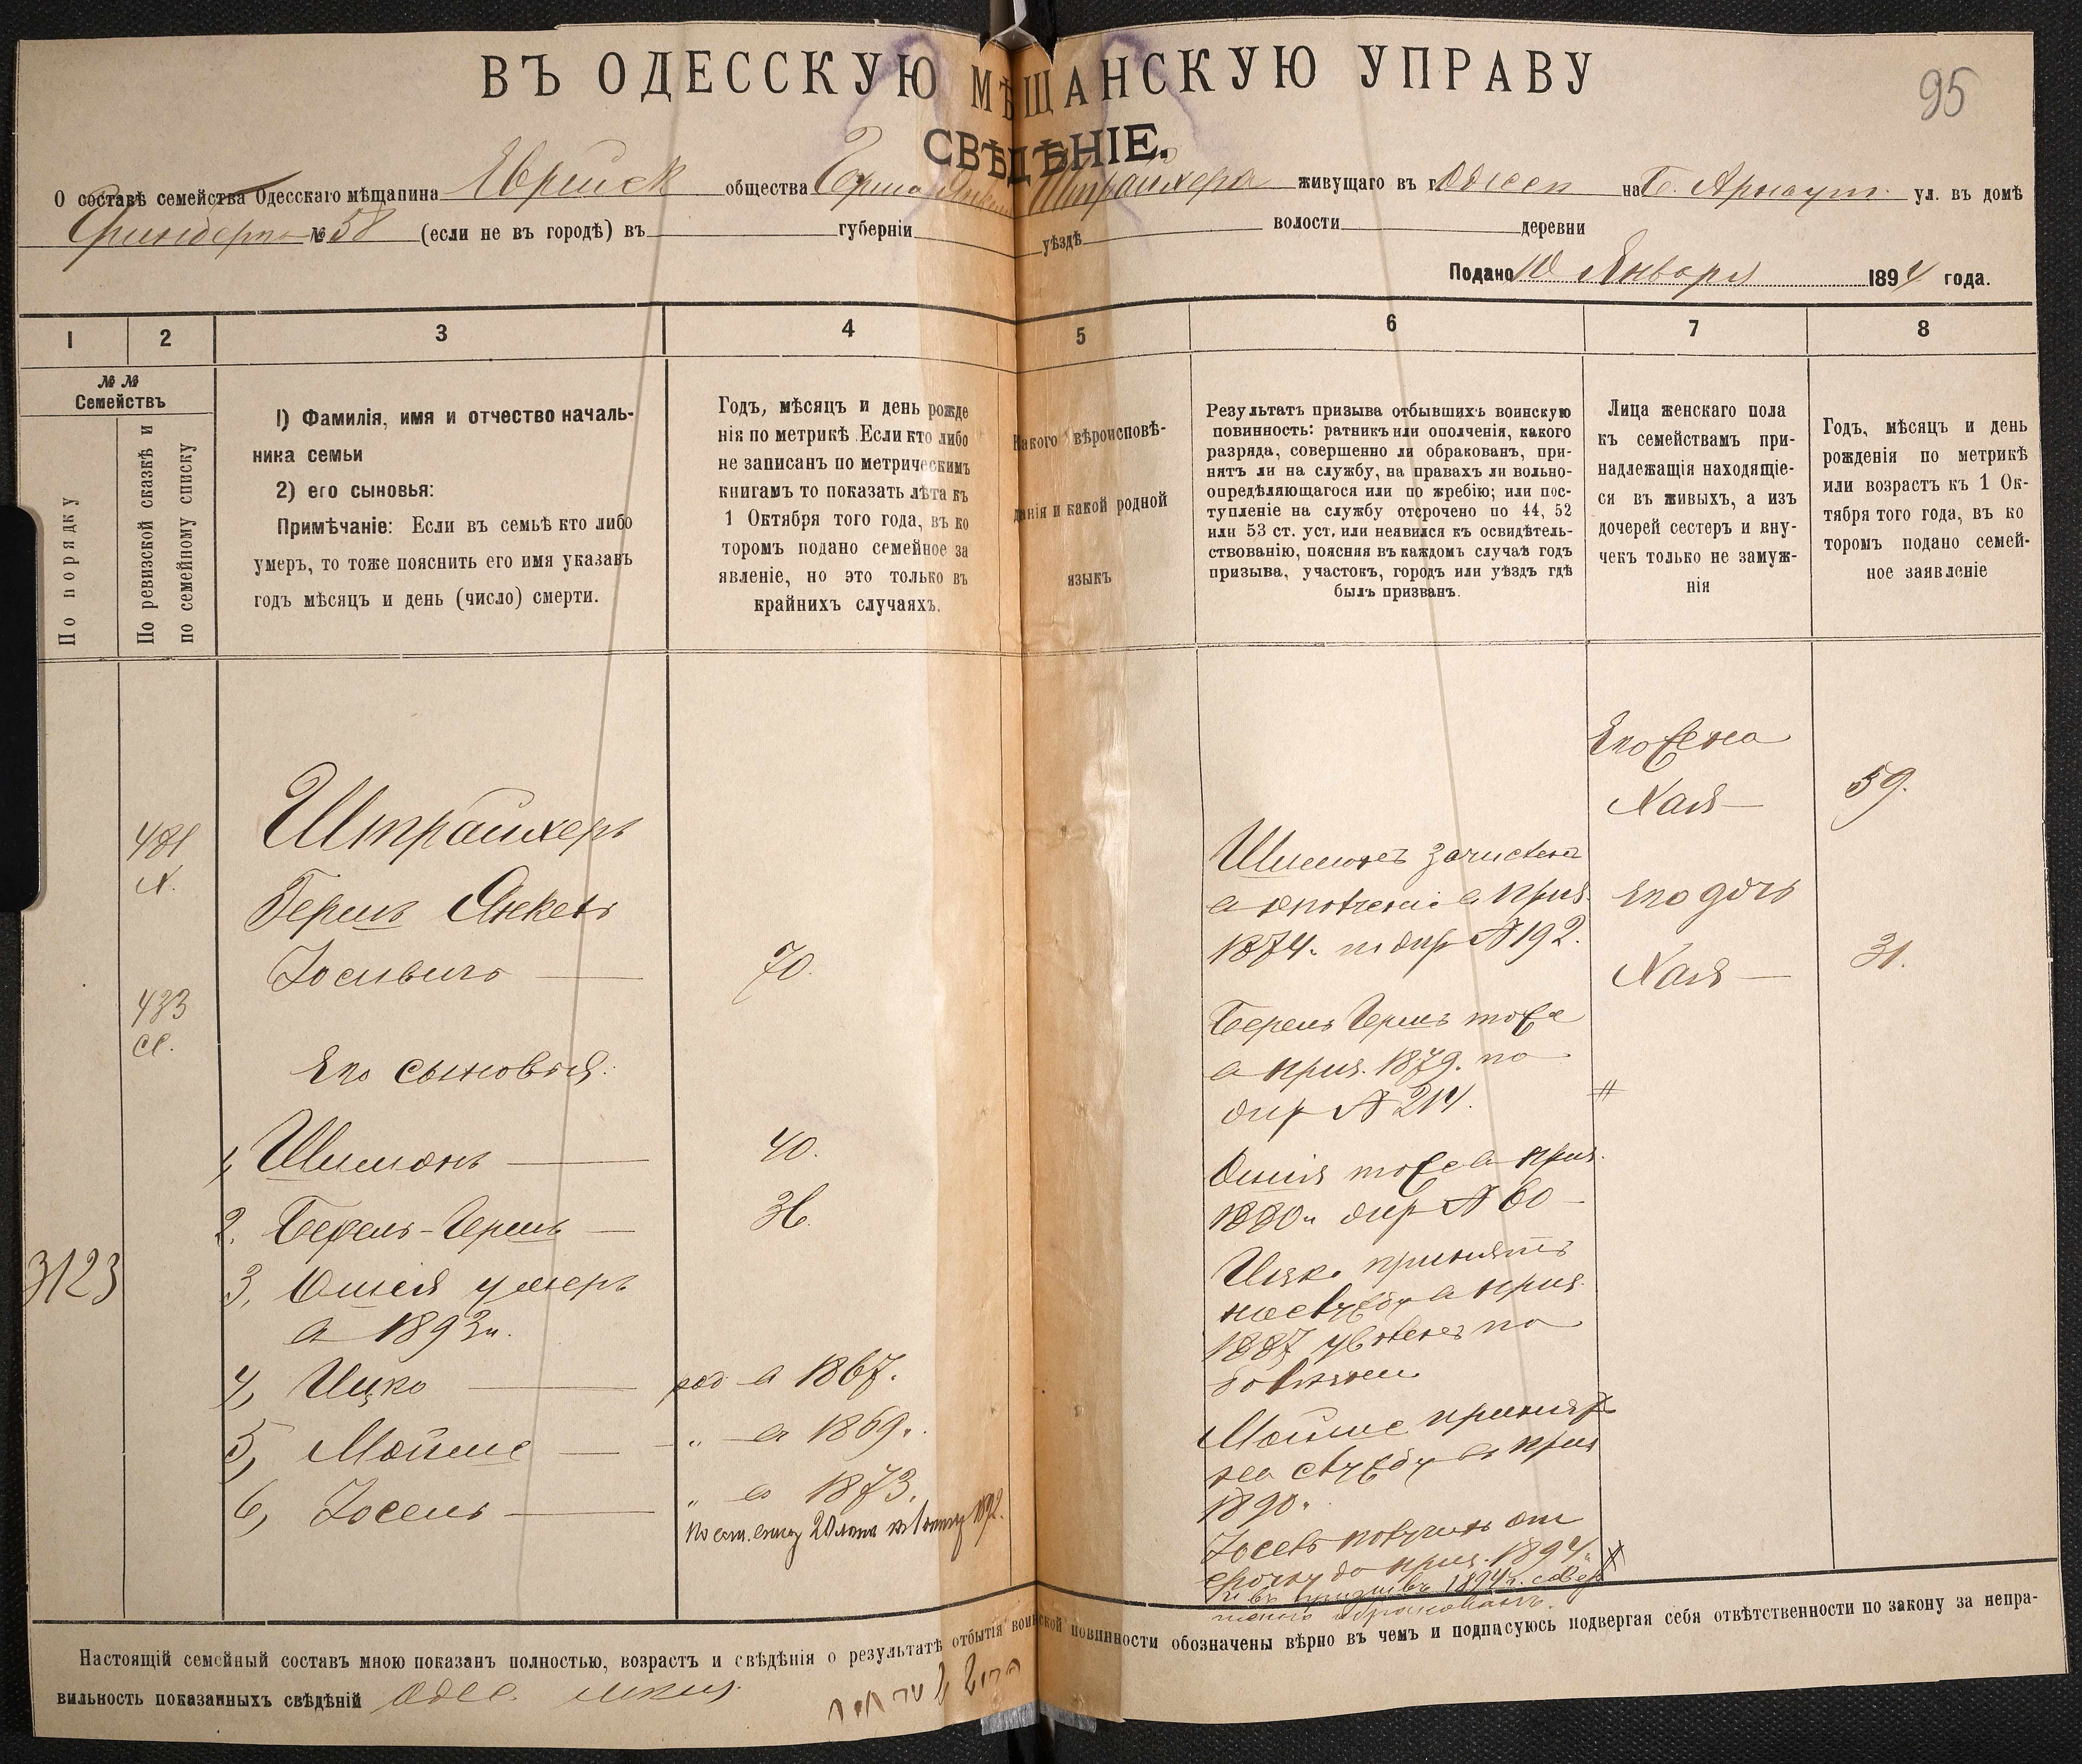 ВЪ ОДЕССКУЮ МѢЩАНСКУЮ УПРАВУ
95
СВѢДѢНІЕ.
О составѣ семейства Одесскаго мѣщанина Еврейск общества Герша Янкеля Штрайхера живущаго въ г. Одессе на Б. Арнаут. ул. въ домѣ
№ 58 (если не въ городѣ) въ губерніи уѣздѣ волости деревни
Подано 10 Января 1894 года.
1 2 3 4 5 6 7 8
№№
Семействъ
По порядку
По ревизской сказкѣ и
по семейному списку
1) Фамилія, имя и отчество началь-
ника семьи
2) его сыновья:
Примѣчаніе: Если въ семьѣ кто либо
умеръ, то тоже пояснить его имя указавъ
годъ мѣсяцъ и день (число) смерти.
Годъ, мѣсяцъ и день рожде
нія по метрикѣ. Если кто либо
не записанъ по метрическимъ
книгамъ то показать лѣта къ
1 Октября того года, въ ко
торомъ подано семейное за
явленіе, но это только въ
крайнихъ случаяхъ.
Какого вѣроисповѣ-
данія и какой родной
языкъ
Результатъ призыва отбывшихъ воинскую
повинность: ратникъ или ополченія, какого
разряда, совершенно ли обракованъ, при-
нятъ ли на службу, на правахъ ли вольно-
опредѣляющагося или по жребію; или пос-
тупленіе на службу отсрочено по 44, 52
или 53 ст. уст. или неявился къ освидѣтель-
ствованію, поясняя въ каждомъ случаѣ годъ
призыва, участокъ, городъ или уѣздъ гдѣ
былъ призванъ.
Лица женскаго пола
къ семействамъ при-
надлежащія находящіе-
ся въ живыхъ, а изъ
дочерей сестеръ и вну-
чекъ только не замуж-
нія
Годъ, мѣсяцъ и день
рожденія по метрикѣ
или возрастъ къ 1 Ок-
тября того года, въ ко
торомъ подано семей-
ное заявленіе
3123
Штрайхеръ
Гершъ Янкель
Іосивичъ 70.
Его сыновья:
1, Шимонъ 40.
2. Берель-Гершъ 36.
3, Ошія умеръ
в 1893г.
4, Ицко род в 1867.
5, Мойше " в 1869.
6, Іосель " в 1873.
Шимонъ зачислен
в ополчение в приз.
1874. № 192.
Берель Гершъ тоже
в приз. 1879. по
№ 214.
Ошія тоже в приз.
1880г № 60
Ицко принятъ
на службу в приз.
1887 уволенъ по
болезни
Мойше принят
на службу въ приз
1890г.
Іосель получилъ от
срочку до приз. 1894г.
Его Жена
Хая 59.
Его дочь
Хая 31.
Настоящій семейный составъ мною показанъ полностью, возрастъ и свѣдѣнія о результатѣ отбытія воинской повинности обозначены вѣрно въ чемъ и подписуюсь подвергая себя отвѣтственности по закону за непра-
вильность показанныхъ свѣдѣній Одес.